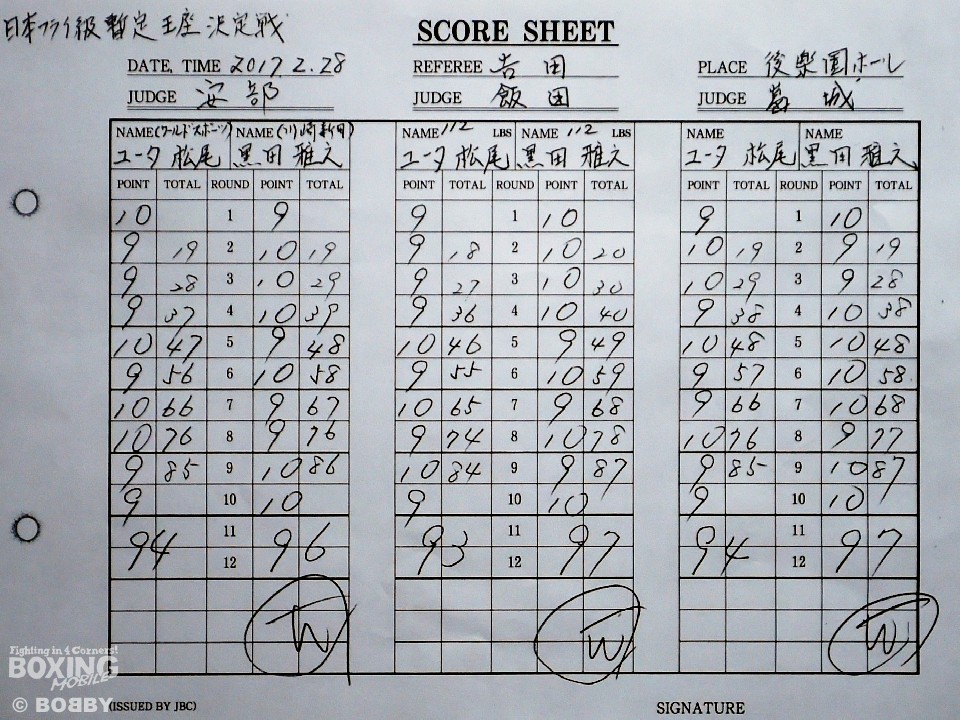 日本フライ級暫定王座決定戦
SCORE SHEET
DATE, TIME 2017. 2. 28 REFEREE 吉田 PLACE 後楽園ホール
JUDGE 安部 JUDGE 飯田 JUDGE 葛城
NAME(ワールドスポーツ) NAME(川崎新田) NAME 112 LBS NAME 112 LBS NAME NAME
ユータ 松尾 黒田 雅之 ユータ 松尾 黒田 雅之 ユータ 松尾 黒田 雅之
POINT TOTAL ROUND POINT TOTAL POINT TOTAL ROUND POINT TOTAL POINT TOTAL ROUND POINT TOTAL
10 1 9 9 1 10 9 1 10
9 19 2 10 19 9 18 2 10 20 10 19 2 9 19
9 28 3 10 29 9 27 3 10 30 10 29 3 9 28
9 37 4 10 39 9 36 4 10 40 9 38 4 10 38
10 47 5 9 48 10 46 5 9 49 10 48 5 10 48
9 56 6 10 58 9 55 6 10 59 9 57 6 10 58
10 66 7 9 67 10 65 7 9 68 9 66 7 10 68
10 76 8 9 76 9 74 8 10 78 10 76 8 9 77
9 85 9 10 86 10 84 9 9 87 9 85 9 10 87
9 10 10 9 10 10 9 10 10
11 11 11
94 96 93 97 94 97
12 12 12
W W W
Fighting in 4 Corners!
BOXING
MOBILE
© BOBBY
(ISSUED BY JBC) SIGNATURE